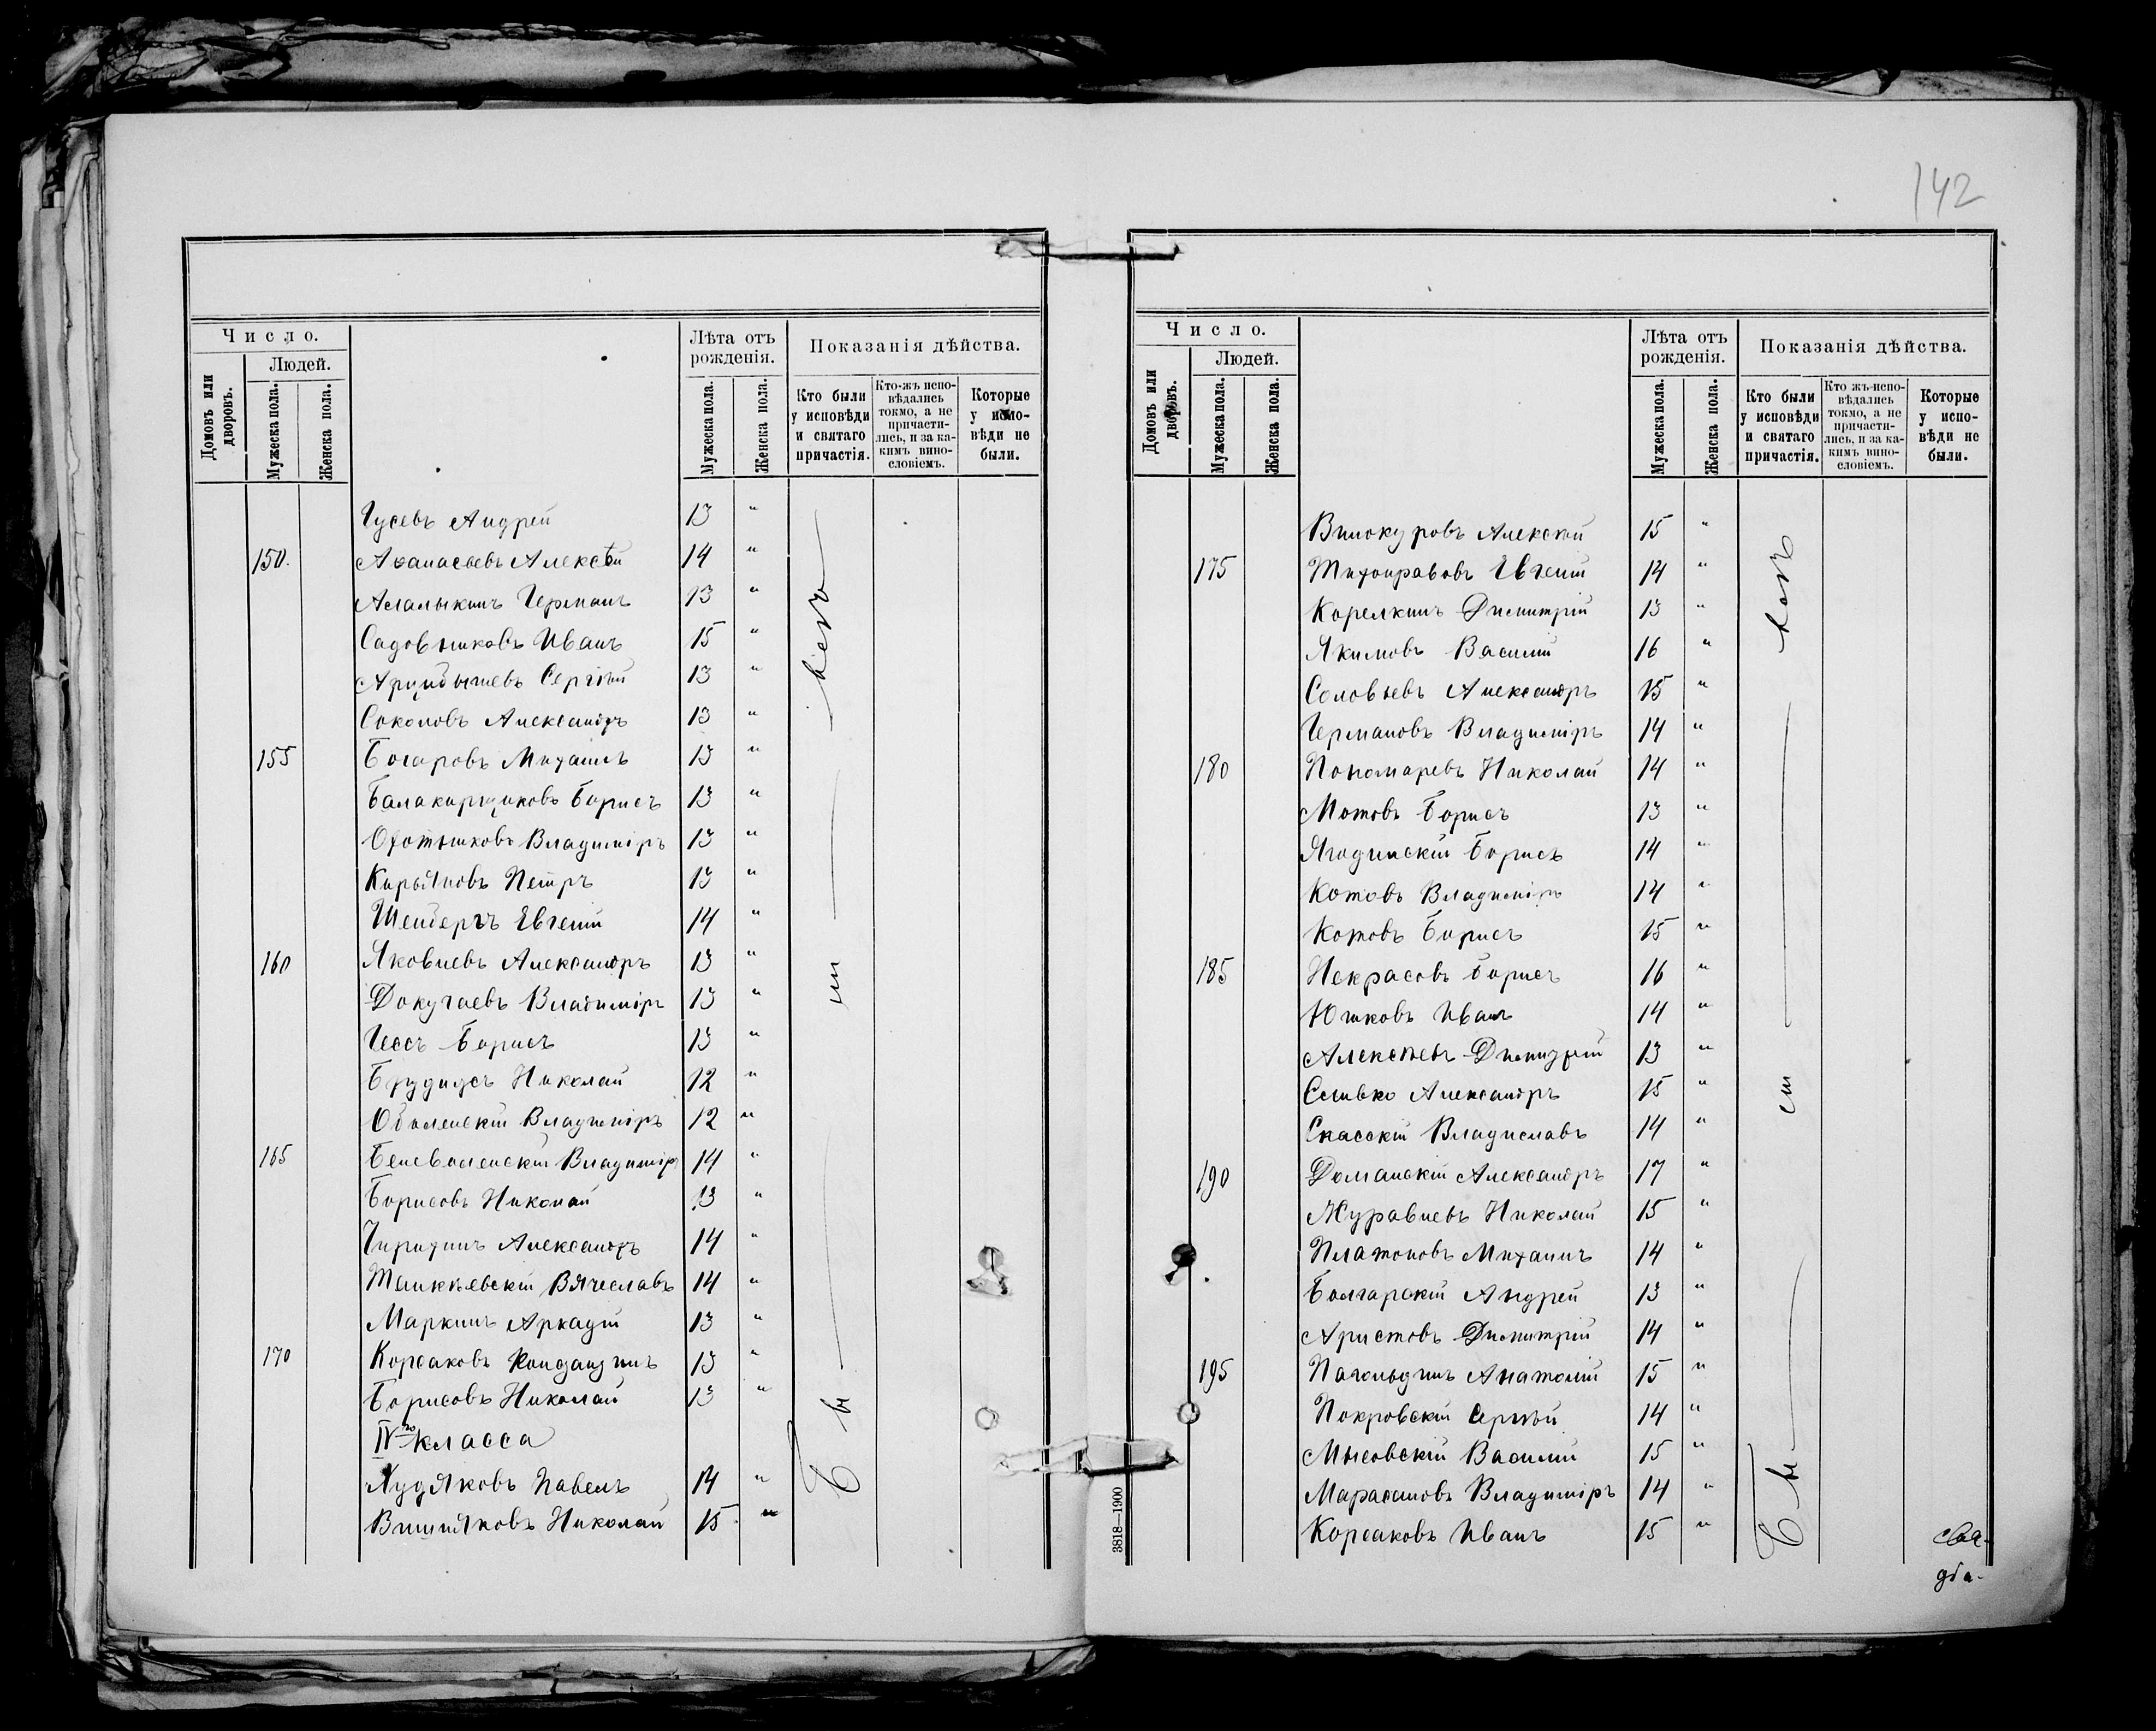 142
Число.
Людей.
Домовъ или дворовъ.
Мужеска пола.
Женска пола.
Лѣта отъ рожденія.
Мужеска пола.
Женска пола.
Показанія дѣйства.
Кто были у исповѣди и святаго причастія.
Кто-жъ исповѣдались токмо, а не причастились, и за какимъ винословіемъ.
Которые у исповѣди не были.
Гусевъ Андрей 13 "
150. Аѳанасьевъ Алексѣй 14 "
Асалыкинъ Германъ 13 "
Садовниковъ Иванъ 15 "
Арцыбышевъ Сергѣй 13 "
Соколовъ Александръ 13 "
155 Богаровъ Михаилъ 13 "
Балакирщиковъ Борисъ 13 "
Охотниковъ Владиміръ 13 "
Кирьяновъ Петръ 13 "
Шенбергъ Евгеній 14 "
160 Яковлевъ Александръ 13 "
Докучаевъ Владиміръ 13 "
Гессъ Борисъ 13 "
Николай 12 "
Оболенскій Владиміръ 12 "
165 Беневоленскій Владиміръ 14 "
Борисовъ Николай 13 "
Чирихинъ Александръ 14 "
Вячеславъ 14 "
Маркинъ Аркадій 13 "
170 Корсаковъ 13 "
Борисовъ Николай 13 "
IV-го класса
Худяковъ Павелъ 14 "
Вишняковъ Николай 15 "
Число.
Людей.
Домовъ или дворовъ.
Мужеска пола.
Женска пола.
Лѣта отъ рожденія.
Мужеска пола.
Женска пола.
Показанія дѣйства.
Кто были у исповѣди и святаго причастія.
Кто жъ исповѣдались токмо, а не причастились, и за какимъ винословіемъ.
Которые у исповѣди не были.
Винокуровъ Алексѣй 15 "
175 Тихонравовъ Евгеній 14 "
Корелкинъ Димитрій 13 "
Якимовъ Василій 16 "
Соловьевъ Александръ 15 "
Германовъ Владиміръ 14 "
180 Пономаревъ Николай 14 "
Мотовъ Борисъ 13 "
Ягодинскій Борисъ 14 "
Котовъ Владиміръ 14 "
Котовъ Борисъ 15 "
185 Некрасовъ Борисъ 16 "
Юшковъ Иванъ 14 "
Алексѣевъ Димитрій 13 "
Семивко Александръ 15 "
Спасскій Владиславъ 14 "
190 Доманскій Александръ 17 "
Журавлевъ Николай 15 "
Платоновъ Михаилъ 14 "
Болгарскій Андрей 13 "
Аристовъ Димитрій 14 "
195 Пагольдинъ Анатолій 15 "
Покровскій Сергѣй 14 "
Мысовскій Василій 15 "
Марасановъ Владиміръ 14 "
Корсаковъ Иванъ 15 "
3818—1900